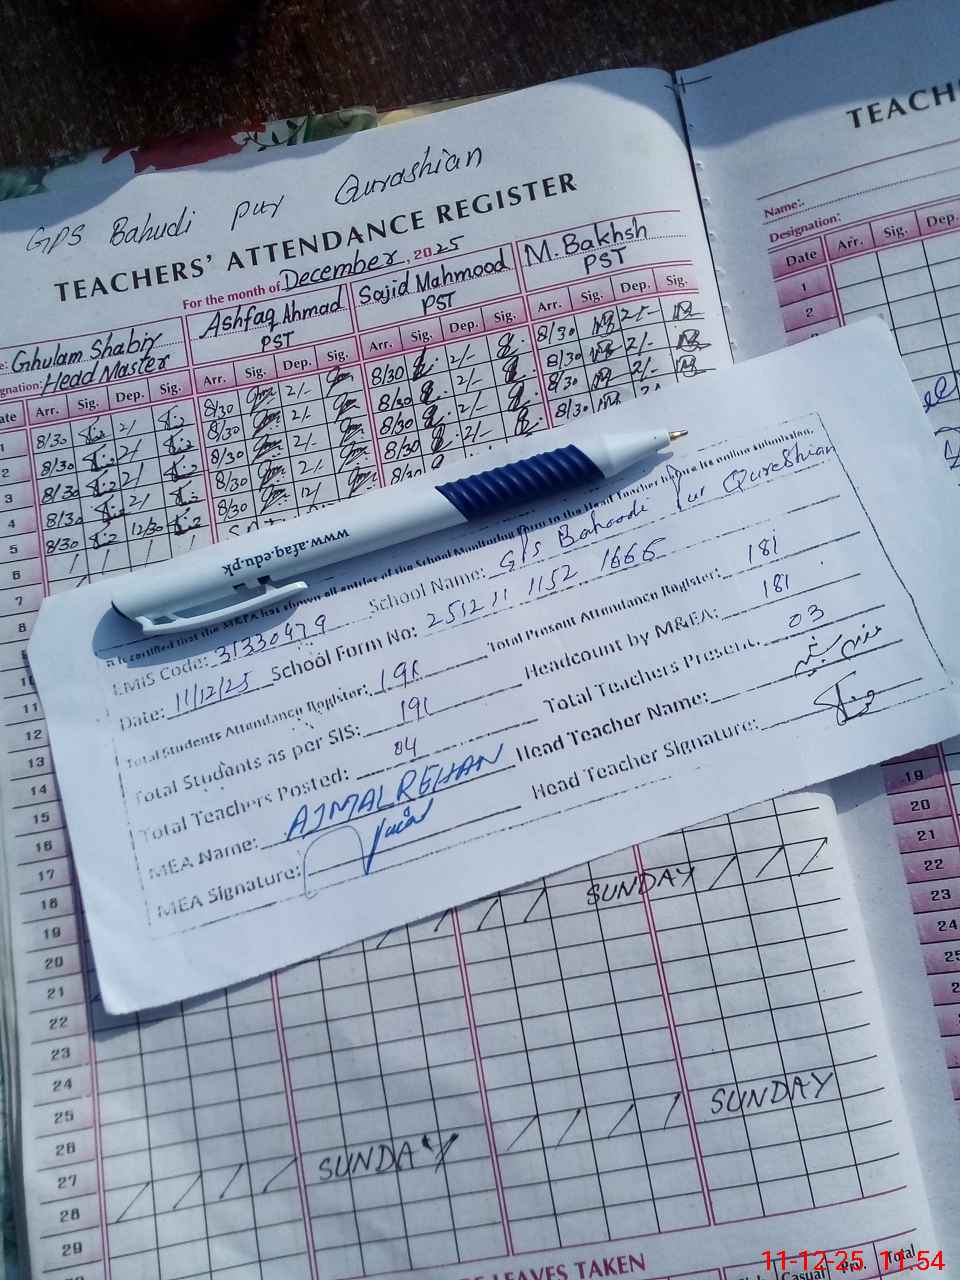 GPS Bahudi pur Qurashian
TEACHERS' ATTENDANCE REGISTER
For the month of December, 2025
Ghulam Shabir Ashfaq Ahmad Sajid Mahmood M. Bakhsh
Designation: Head Master PST PST PST
Date Arr. Sig. Dep. Sig. Arr. Sig. Dep. Sig. Arr. Sig. Dep. Sig. Arr. Sig. Dep. Sig.
1 8/30 2/ 8/30 2/- 8/30 2/- 8/30 2/-
2 8/30 2/ 8/30 2/- 8/30 2/- 8/30 2/-
3 8/30 2/ 8/30 2/- 8/30 2/- 8/30 2/-
4 8/30 2/ 8/30 2/- 8/30 2/- 8/30
5 8/30 12/30 8/30 12/ 8/30
6
7
8
www.afaq.edu.pk
It is certified that the MEA has shown all entries of the School Monitoring Form to the Head Teacher before its online submission.
EMIS Code: 31330479 School Name: GPS Bahoodi Pur Qureshian
Date: 11/12/25 School Form No: 2512 11 1152 1666
Total Students Attendance Register: 191 Total Present Attendance Register: 181
Total Students as per SIS: 191 Headcount by M&EA: 181
Total Teachers Posted: 04 Total Teachers Present: 03
MEA Name: AJMAL REHAN Head Teacher Name:
MEA Signature: Head Teacher Signature:
11
12
13
14
15
16
17
18
19
20
21 SUNDAY
22
23
24
25
26
27
28 SUNDAY SUNDAY
29
LEAVES TAKEN
Casual Prv. Total
TEACH
Name:
Designation:
Date Arr. Sig. Dep.
1
2
19
20
21
22
23
24
25
11-12-25 11:54